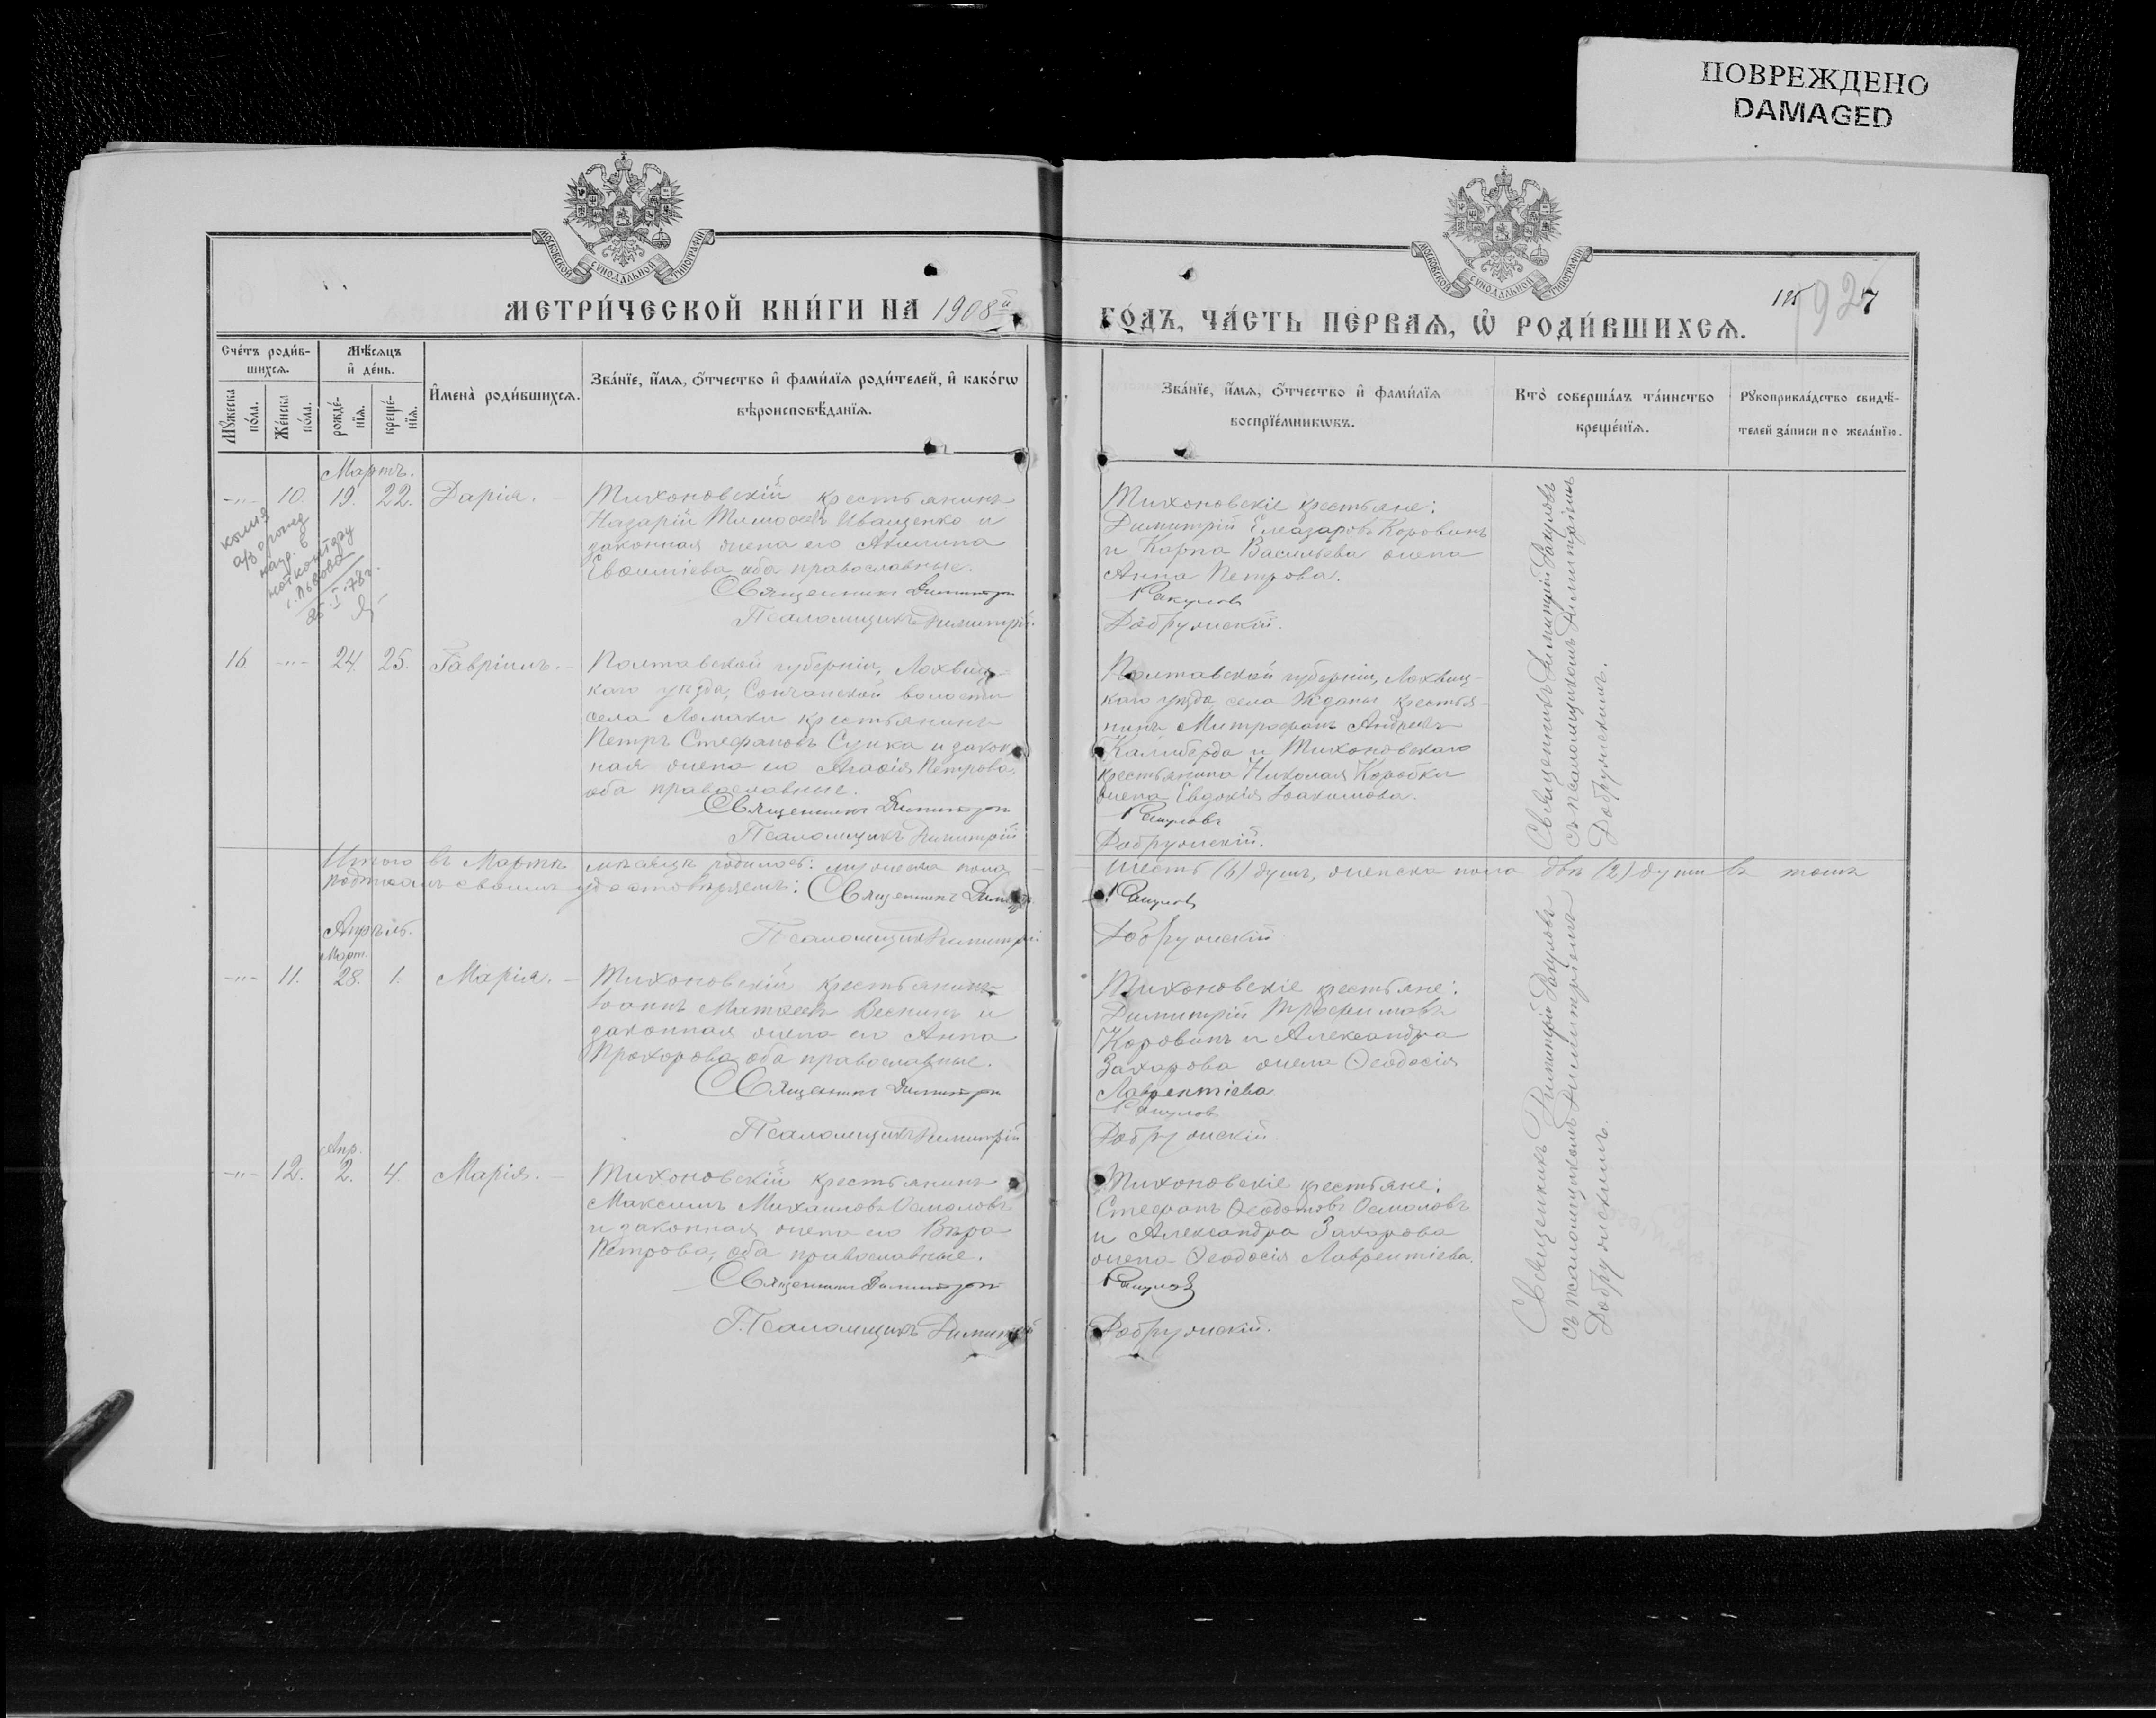 ПОВРЕЖДЕНО
DAMAGED
МОСКОВСКОЙ СѴНОДАЛЬНОЙ ТИПОГРАФІИ
МОСКОВСКОЙ СѴНОДАЛЬНОЙ ТИПОГРАФІИ
МЕТРИ́ЧЕСКОЙ КНИ́ГИ НА 1908й
ГО́ДЪ, ЧА́СТЬ ПЕ́РВАѦ, Ѽ РОДИ́ВШИХСѦ.
Сче́тъ роди́в-
шихсѧ.
Мѣ́сѧцъ
и҆ де́нь.
Мꙋ́жеска
по́ла.
Же́нска
по́ла.
рожде́-
нїѧ.
креще́-
нїѧ.
И҆мена̀ роди́вшихсѧ.
Зва́нїе, и҆́мѧ, ѻ҆́тчество и҆ фами́лїѧ роди́телей, и҆ како́гѡ
вѣроисповѣ́данїѧ.
Зва́нїе, и҆́мѧ, ѻ҆́тчество и҆ фами́лїѧ
воспрїе́мникѡвъ.
Кто̀ соверша́лъ та́инство
креще́нїѧ.
Рꙋкоприкла́дство свидѣ́-
телей за́писи по жела́нїю.
Мартъ.
-"- 10. 19. 22. Дарія.
Тихоновскій крестьянинъ
Назарій Тимоѳеевъ Иващенко и
законная жена его Акилина
Евѳиміева, оба православные.
Священникъ Димитрій
Псаломщикъ Димитрій
Тихоновскіе крестьяне:
Димитрій Елеазаровъ Коровинъ
и Карпа Васильева жена
Анна Петрова.
Ракуловъ
Добружскій.
копия
нотконтору
г. Львова
25.I.78г.
16. -"- 24. 25. Гавріилъ.
Полтавской губерніи, Лохвиц-
каго уѣзда, Сенчанской волости
села Ломаки крестьянинъ
Петръ Стефановъ Сунка и закон
ная жена его Агаѳія Петрова,
оба православные.
Священникъ Димитрій
Псаломщикъ Димитрій
Полтавской губерніи, Лохвиц-
каго уѣзда села Жданы крестья-
нинъ Митрофанъ Андреевъ
Калиберда и Тихоновскаго
крестьянина Николая Коробки
жена Евдокія Іоакимова.
Ракуловъ
Добружскій.
Священникъ Димитрій Ракуловъ
съ псаломщикомъ Димитріемъ
Добружскимъ.
Итого въ Мартѣ мѣсяцѣ родилось: мужеска пола
шесть (6) душъ, женска пола двѣ (2) души въ томъ
подписомъ своимъ удостовѣряемъ: Священникъ Димитрій
Ракуловъ
Псаломщикъ Димитрій
Добружскій
Апрѣль.
Март.
-"- 11. 28. 1. Марія.
Тихоновскій крестьянинъ
Іоаннъ Матѳеевъ Веснинъ и
законная жена его Анна
Прохорова, оба православные.
Священникъ Димитрій
Псаломщикъ Димитрій
Тихоновскіе крестьяне:
Димитрій Трофимовъ
Коровинъ и Александра
Захарова жена Ѳеодосія
Лаврентіева.
Ракуловъ
Добружскій
Апр.
-"- 12. 2. 4. Марія.
Тихоновскій крестьянинъ
Максимъ Михаиловъ Осмоловъ
и законная жена его Вѣра
Петрова, оба православные.
Священникъ Димитрій
Псаломщикъ Димитрій
Тихоновскіе крестьяне:
Стефанъ Ѳеодотовъ Осмоловъ
и Александра Захарова
жена Ѳеодосія Лаврентіева.
Ракуловъ
Добружскій.
Священникъ Димитрій Ракуловъ
съ псаломщикомъ Димитріемъ
Добружскимъ.